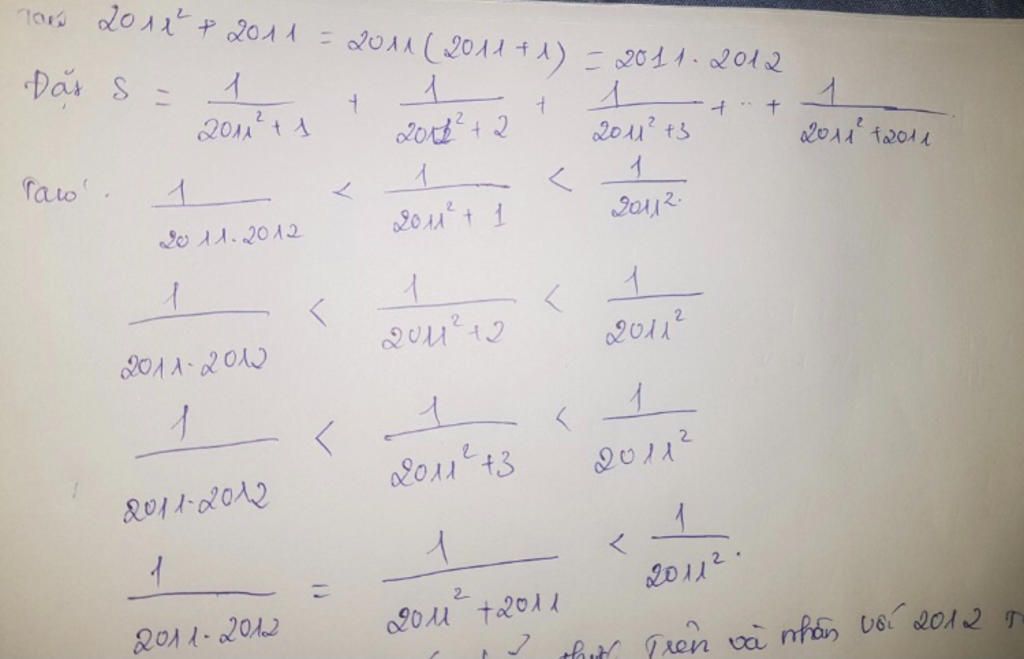 Ta có 2011² + 2011 = 2011 (2011 + 1) = 2011 . 2012
Đặt S = 1/(2011² + 1) + 1/(2011² + 2) + 1/(2011² + 3) + ... + 1/(2011² + 2011)
Ta có . 1/(2011 . 2012) < 1/(2011² + 1) < 1/2011² .
1/(2011 . 2012) < 1/(2011² + 2) < 1/2011²
1/(2011 . 2012) < 1/(2011² + 3) < 1/2011²
1/(2011 . 2012) = 1/(2011² + 2011) < 1/2011² .
thức trên và nhân với 2012